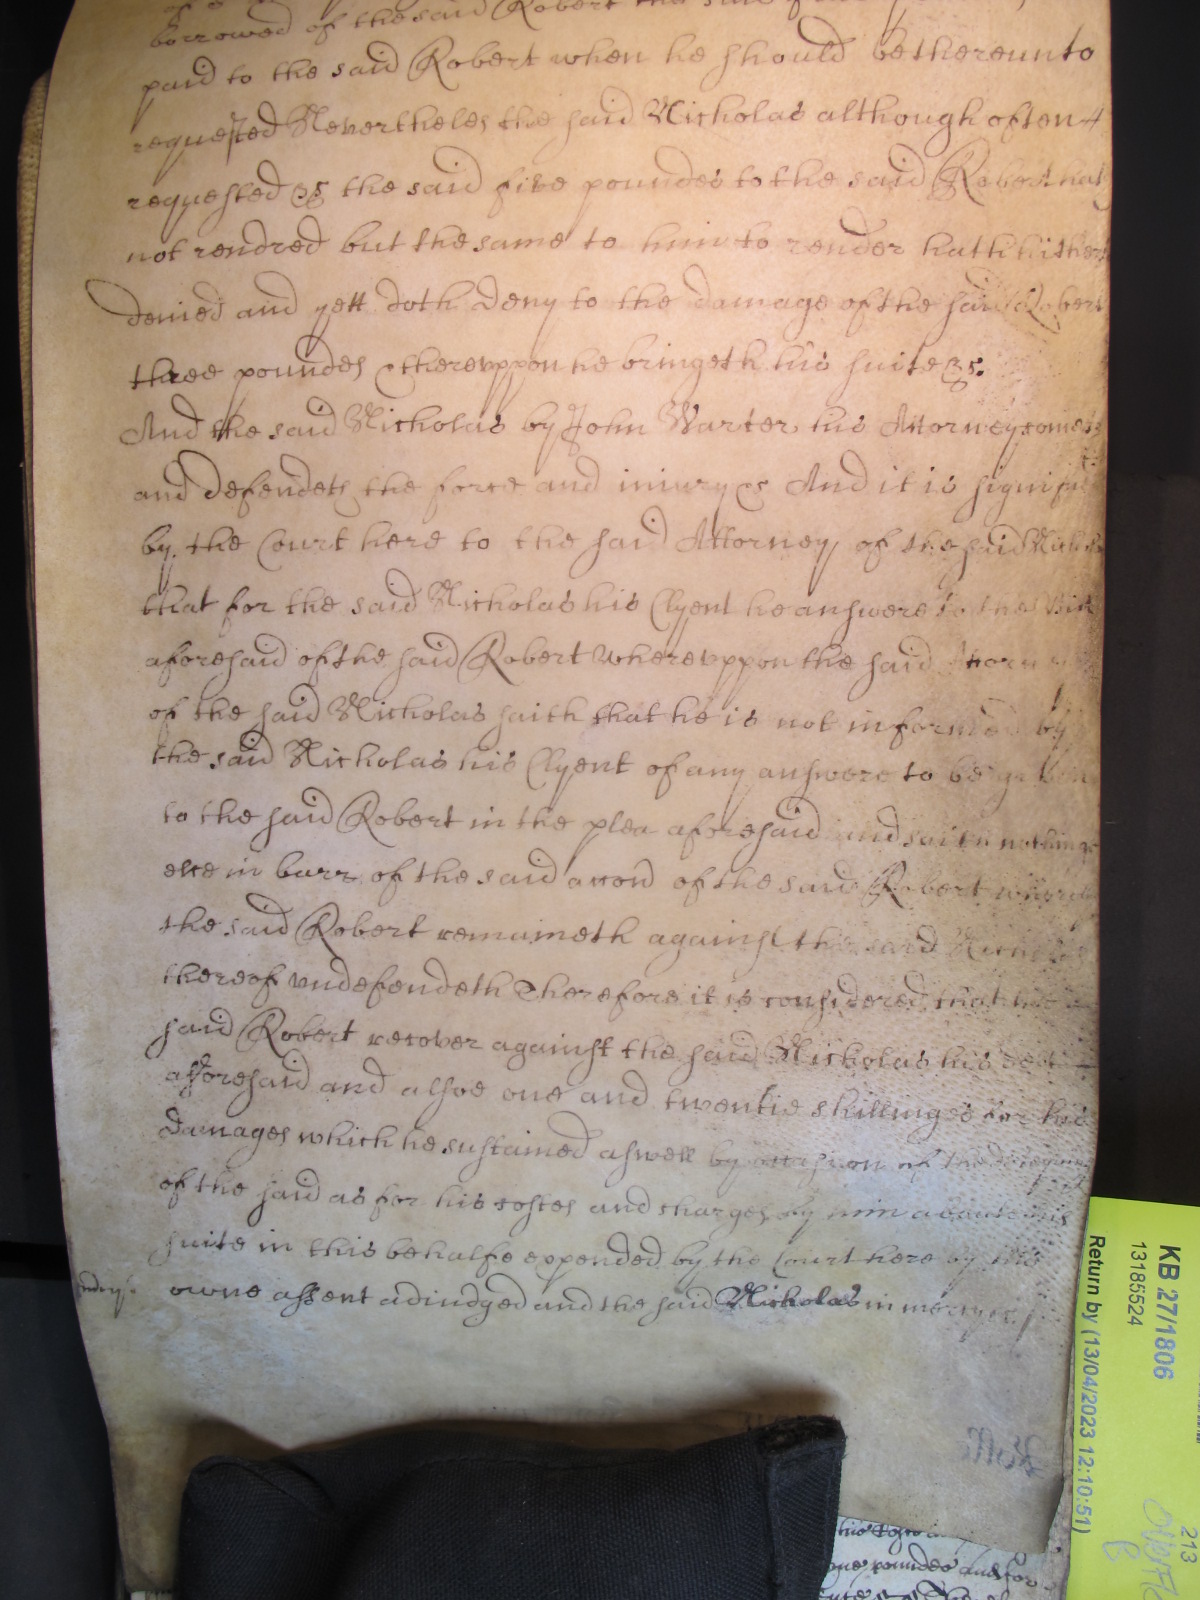 borrowed of the said Robert the said
paid to the said Robert when he should bethereunto
requested Nevertheles the said Nicholas although often
requested &c the said five poundes to the said Robert hat
not rendred but the same to him to render hath hither
denied and yett doth deny to the damage of the said Robert
three poundes & therevppon he bringeth his suite &c.
And the said Nicholas by John Warter his Attorney comes
and defendeth the force and iniury &c And it is signif
by the Court here to the said Attorney of the said Nich
that for the said Nicholas his Clyent he answere to the
aforesaid of the said Robert Wherevppon the said Attorn
of the said Nicholas saith that he is not informed by
the said Nicholas his Clyent of any answere to be given
to the said Robert in the plea aforesaid and saith nothing
else in barr of the said accon of the said Robert
the said Robert remaineth against the said Nicholas
thereof vndefendeth Therefore it is considered that the
said Robert recover against the said Nicholas his debt
afforesaid and alsoe one and twentie shillinges for his
damages which he sustained aswell by occasion of the
of the said as for his costes and charges by him aboute his
suite in this behalfe expended by the Court here by his
owne assent adiudged and the said Nicholas in mercy &c
KB 27/1806
13185524
Return by (13/04/2023 12:10:51)
213
Roll
one poundes and for